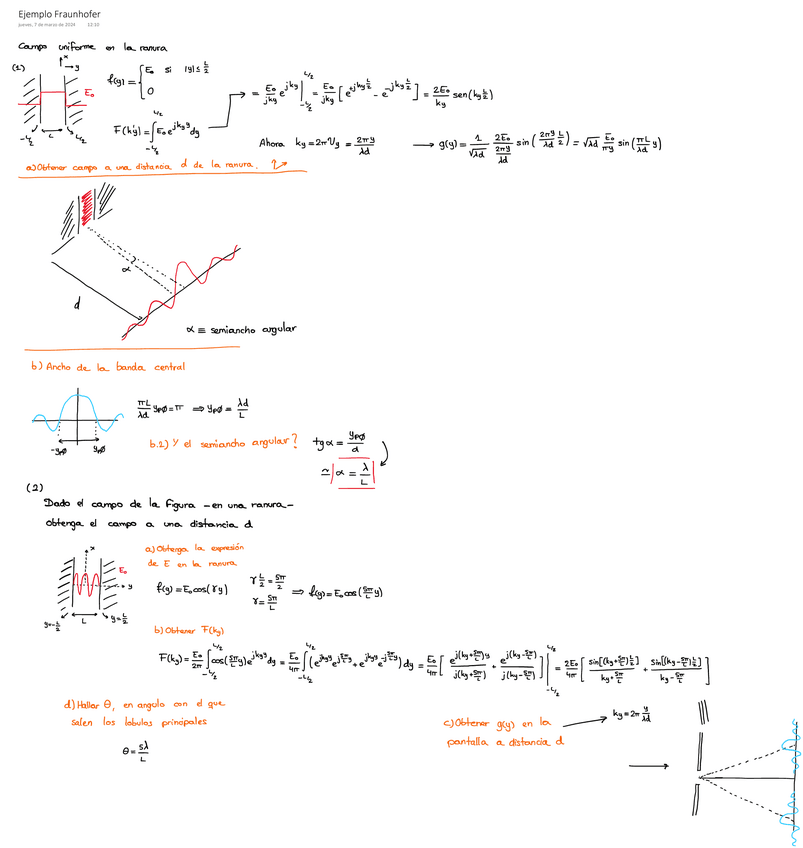 Ejemplo Fraunhofer
jueves, 7 de marzo de 2024 12:10
Campo uniforme en la ranura
(1)
x
y
E₀
-L/2
L
L/2
f(y) = { E₀ si |y| ≤ L/2
0
F(k'y) = ∫_{-L/2}^{L/2} E₀ e^{jk_y y} dy
= E₀/(jk_y) e^{jk_y y} |_{-L/2}^{L/2} = E₀/(jk_y) [e^{+jk_y L/2} - e^{-jk_y L/2}] = 2E₀/k_y sen(k_y L/2)
Ahora k_y = 2πν_y = 2πy/(λd)
→ g(y) = 1/√(λd) 2E₀/(2πy/(λd)) sin(2πy/(λd) L/2) = √(λd) E₀/(πy) sin(πL/(λd) y)
a) Obtener campo a una distancia d de la ranura.
α
d
α ≡ semiancho angular
b) Ancho de la banda central
-y_{pø}
y_{pø}
πL/(λd) y_{pø} = π ⟹ y_{pø} = λd/L
b.2) Y el semiancho angular?
tg α = y_{pø}/d
≃ | α = λ/L |
(2)
Dado el campo de la figura -en una ranura-
obtenga el campo a una distancia d
x
E₀
y
L
y=-L/2
y=L/2
a) Obtenga la expresión
de E en la ranura
f(y) = E₀ cos(γy)
γ L/2 = 5π/2
γ = 5π/L
⟹ f(y) = E₀ cos(5π/L y)
b) Obtener F(ky)
F(k_y) = E₀/2π ∫_{-L/2}^{L/2} cos(5π/L y) e^{jk_y y} dy = E₀/4π ∫_{-L/2}^{L/2} (e^{jk_y y} e^{j5π/L y} + e^{jk_y y} e^{-j5π/L y}) dy = E₀/4π [ e^{j(k_y+5π/L)y}/(j(k_y+5π/L)) + e^{j(k_y-5π/L)}/(j(k_y-5π/L)) ] |_{-L/2}^{L/2} = 2E₀/4π [ sin[(k_y+5π/L)L/2]/(k_y+5π/L) + sin[(k_y-5π/L)L/2]/(k_y-5π/L) ]
d) Hallar θ, en angulo con el que
salen los lobulos principales
θ = 5λ/L
c) Obtener g(y) en la
pantalla a distancia d
k_y = 2π y/(λd)